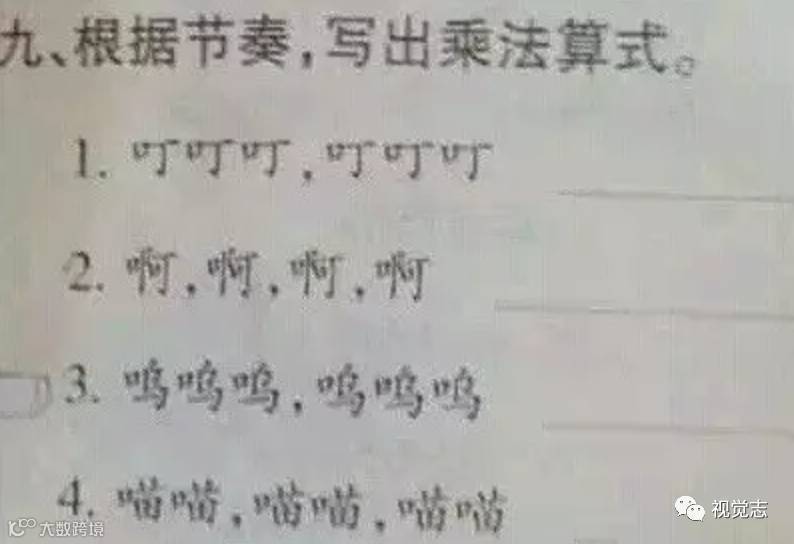 九、根据节奏,写出乘法算式。
1. 叮叮叮,叮叮叮
2. 啊,啊,啊,啊
3. 呜呜呜,呜呜呜
4. 喵喵,喵喵,喵喵
视觉志
大数跨境